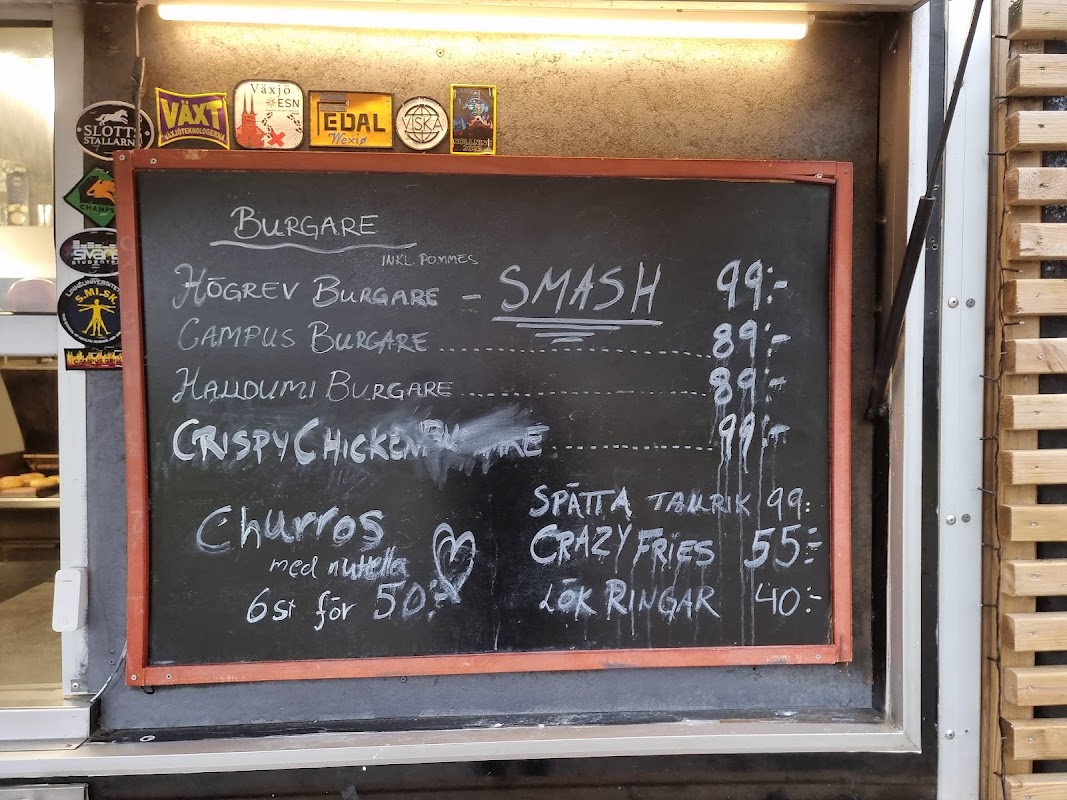 SLOTTS
STALLARNA
VÄXT
VÄXJÖTEKNOLOGERNA
Växjö
ESN
EDAL
Wexiö
VISKA
BURGARE
INKL. POMMES
HÖGREV BURGARE - SMASH 99:-
CAMPUS BURGARE 89:-
HALLOUMI BURGARE 89:-
CRISPY CHICKEN 99:-
Churros
med nutella
6st för 50:-
SPÄTTA TALLRIK 99:
CRAZY FRIES 55:-
LÖK RINGAR 40:-
LINNÉUNIVERSITETET
S.M.I.S.K.